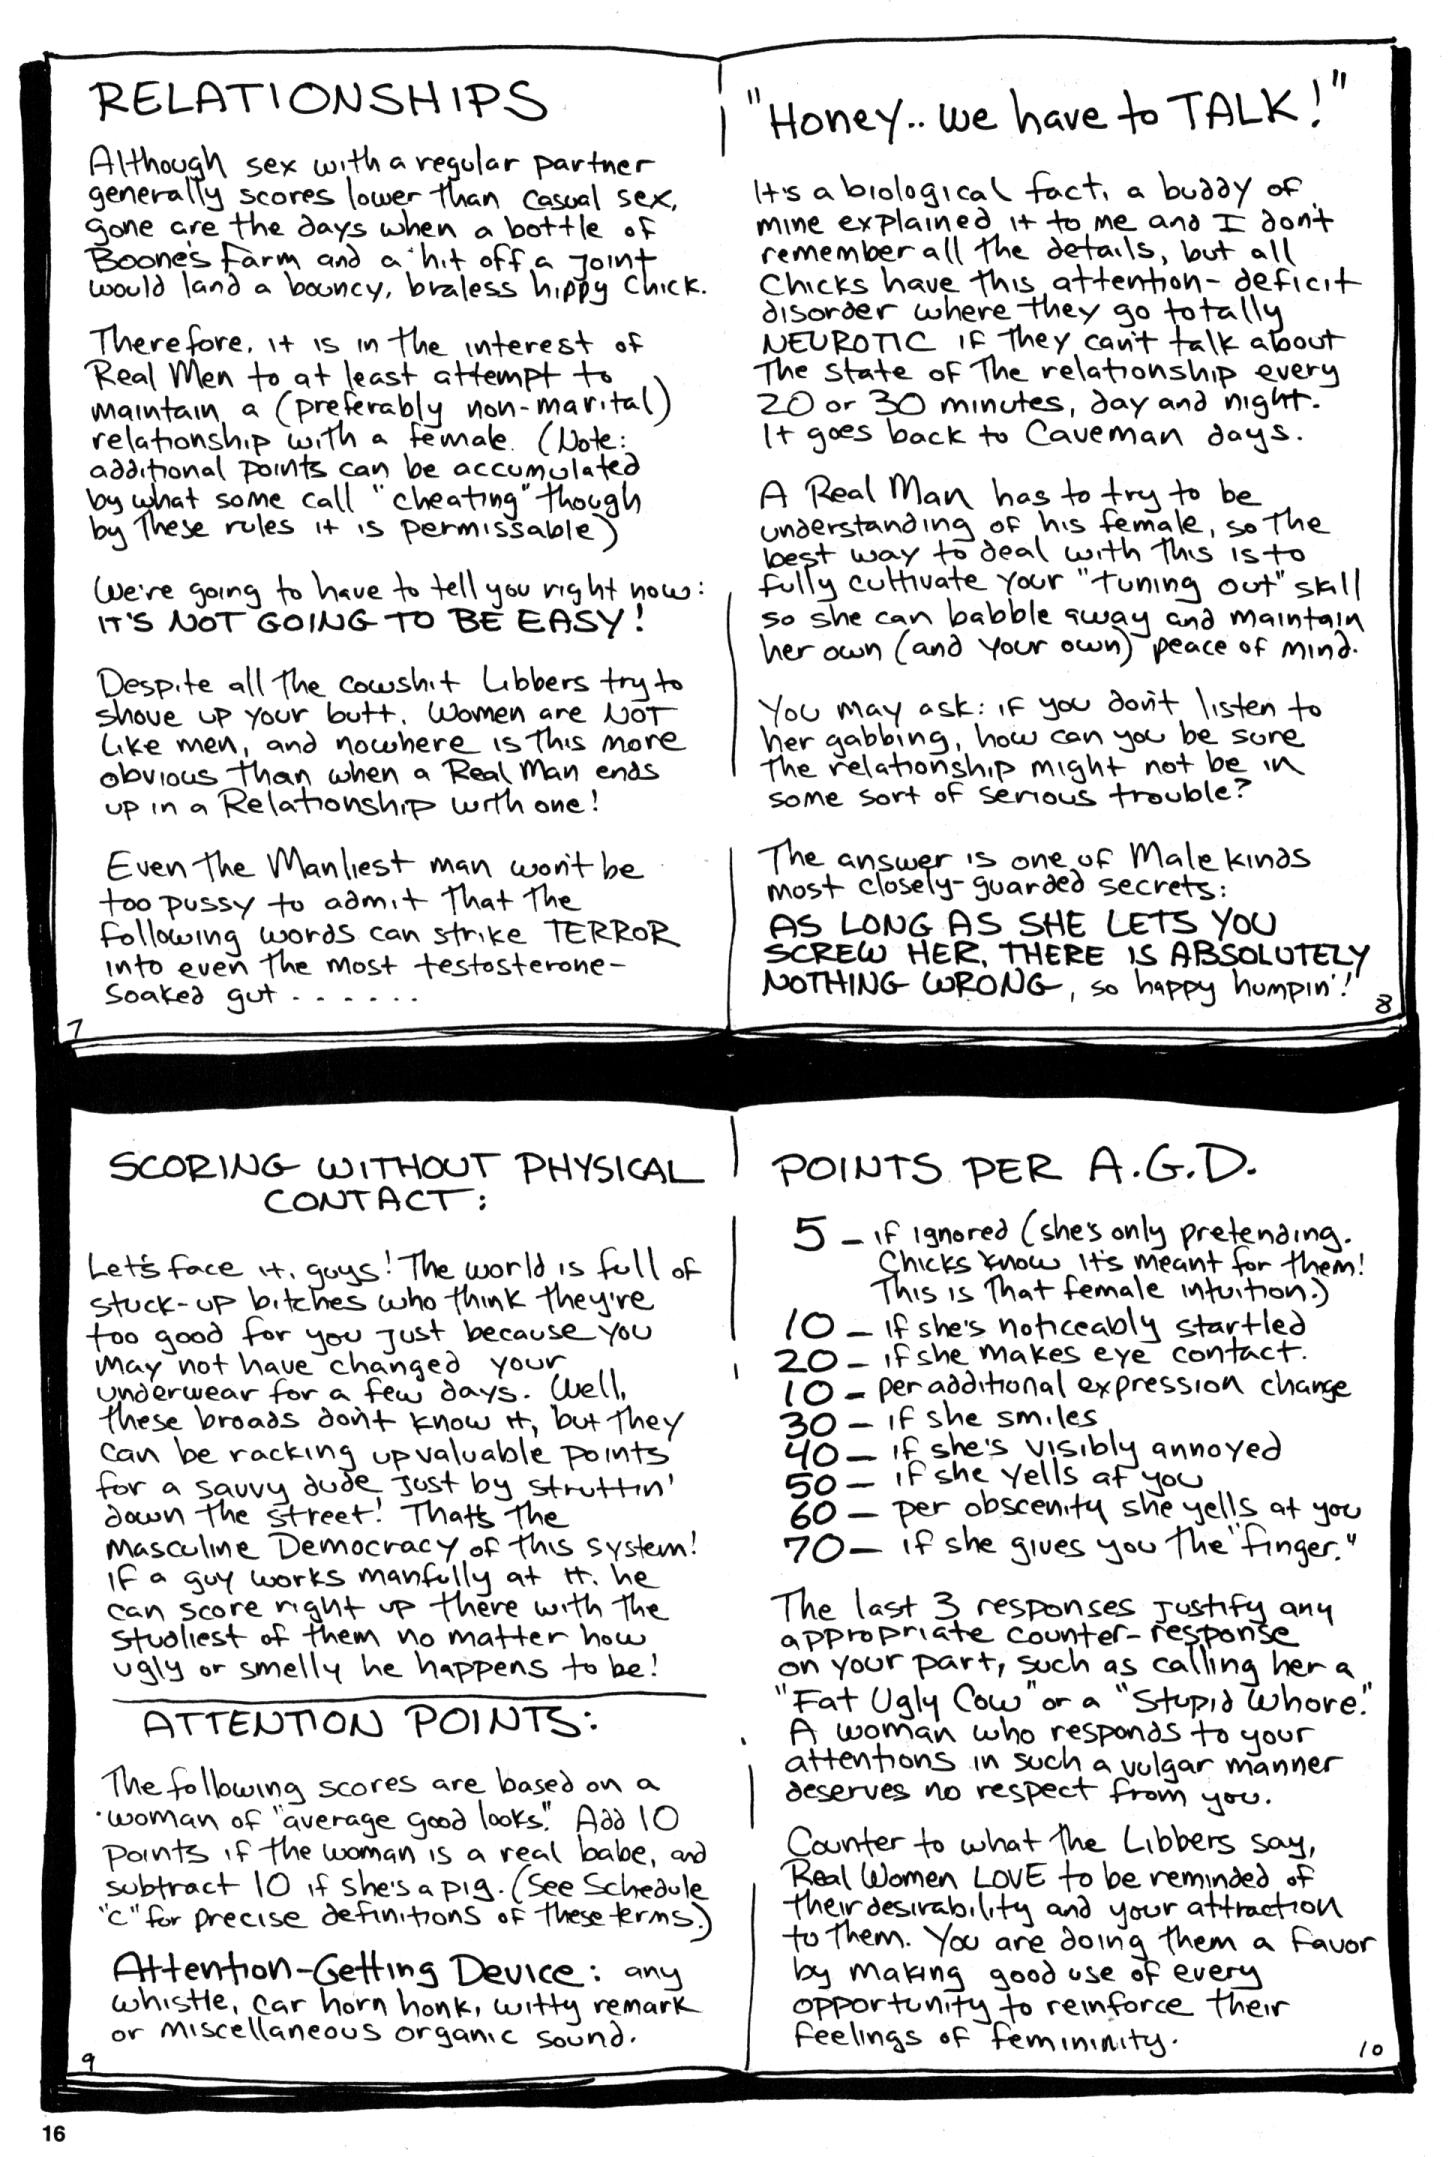 RELATIONSHIPS
Although sex with a regular partner
generally scores lower than casual sex,
gone are the days when a bottle of
Boone's Farm and a hit off a joint
would land a bouncy, braless hippy chick.
Therefore, it is in the interest of
Real Men to at least attempt to
maintain a (preferably non-marital)
relationship with a female. (Note:
additional points can be accumulated
by what some call "cheating" though
by these rules it is permissable)
We're going to have to tell you right now:
IT'S NOT GOING TO BE EASY!
Despite all the cowshit Libbers try to
shove up your butt, Women are NOT
like men, and nowhere is this more
obvious than when a Real Man ends
up in a Relationship with one!
Even the Manliest man won't be
too pussy to admit that the
following words can strike TERROR
into even the most testosterone-
soaked gut . . . . . .
7
"Honey.. we have to TALK!"
It's a biological fact, a buddy of
mine explained it to me and I don't
remember all the details, but all
Chicks have this attention-deficit
disorder where they go totally
NEUROTIC if they can't talk about
the state of the relationship every
20 or 30 minutes, day and night.
It goes back to Caveman days.
A Real Man has to try to be
understanding of his female, so the
best way to deal with this is to
fully cultivate your "tuning out" skill
so she can babble away and maintain
her own (and your own) peace of mind.
You may ask: if you don't listen to
her gabbing, how can you be sure
the relationship might not be in
some sort of serious trouble?
The answer is one of Male kinds
most closely-guarded secrets:
AS LONG AS SHE LETS YOU
SCREW HER, THERE IS ABSOLUTELY
NOTHING WRONG, so happy humpin'!
8
SCORING WITHOUT PHYSICAL
CONTACT:
Let's face it, guys! The world is full of
stuck-up bitches who think they're
too good for you just because you
may not have changed your
underwear for a few days. Well,
these broads don't know it, but they
can be racking up valuable points
for a savvy dude just by struttin'
down the street! That's the
Masculine Democracy of this system!
If a guy works manfully at it, he
can score right up there with the
studliest of them no matter how
ugly or smelly he happens to be!
ATTENTION POINTS:
The following scores are based on a
woman of "average good looks." Add 10
points if the woman is a real babe, and
subtract 10 if she's a pig. (See Schedule
"C" for precise definitions of these terms.)
Attention-Getting Device: any
whistle, car horn honk, witty remark
or miscellaneous organic sound.
9
POINTS PER A.G.D.
5 – if ignored (she's only pretending.
Chicks know it's meant for them!
This is that female intuition.)
10 – if she's noticeably startled
20 – if she makes eye contact.
10 – per additional expression change
30 – if she smiles
40 – if she's visibly annoyed
50 – if she yells at you
60 – per obscenity she yells at you
70 – if she gives you the "finger."
The last 3 responses justify any
appropriate counter-response
on your part, such as calling her a
"Fat Ugly Cow" or a "Stupid Whore."
A woman who responds to your
attentions in such a vulgar manner
deserves no respect from you.
Counter to what the Libbers say,
Real Women LOVE to be reminded of
their desirability and your attraction
to them. You are doing them a favor
by making good use of every
opportunity to reinforce their
feelings of femininity.
10
16